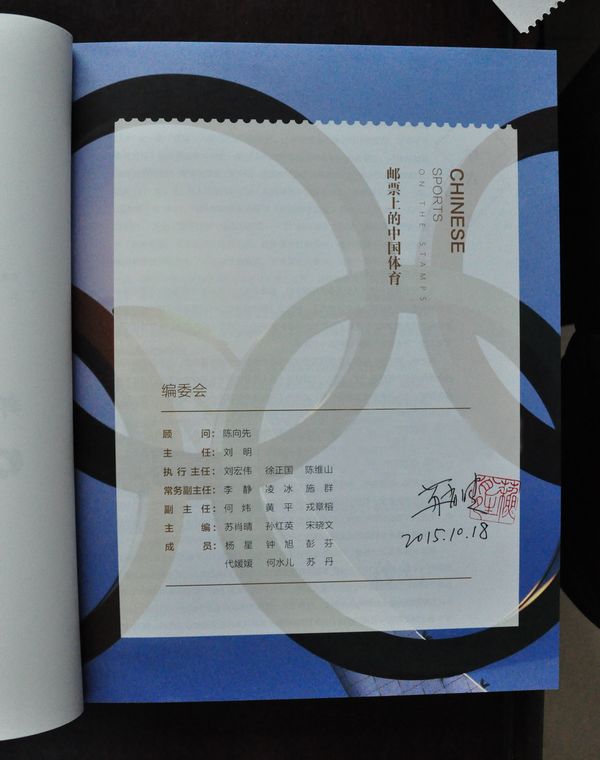 CHINESE
SPORTS
ON THE STAMPS
邮票上的中国体育
编委会
顾 问：陈向先
主 任：刘 明
执行主任：刘宏伟 徐正国 陈维山
常务副主任：李 静 凌 冰 施 群
副 主 任：何 炜 黄 平 戎章榕
主 编：苏肖晴 孙红英 宋晓文
成 员：杨 星 钟 旭 彭 芬
代媛媛 何水儿 苏 丹
苏肖晴
2015.10.18